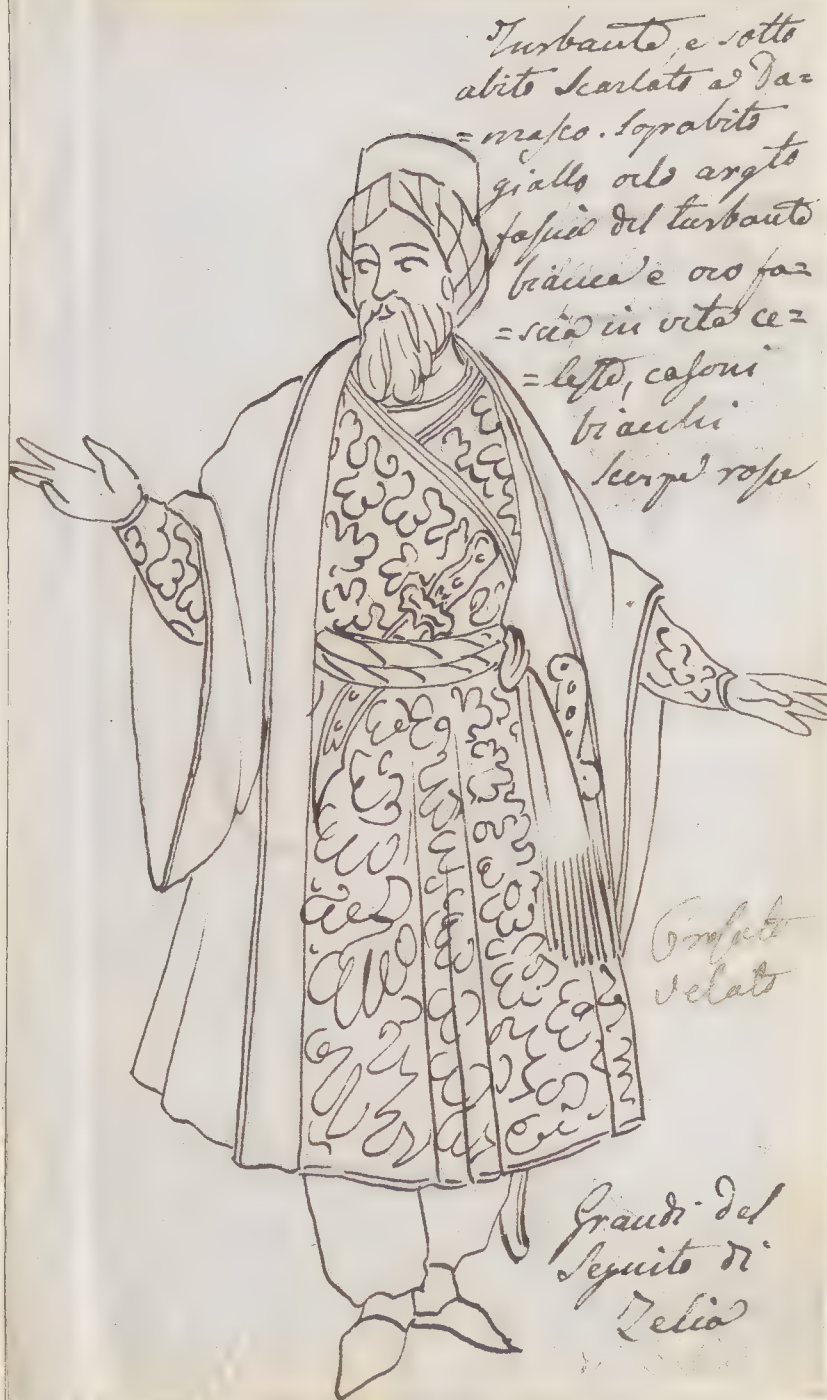 Turbante, e sotto
abito Scarlato a Da=
=masco. Soprabito
giallo orlo argto
fascia del turbante
bianca e oro fa=
=scia in vita ce=
=leste, calsoni
bianchi
scarpe rosse
velato
Grandi del
Seguito di
Zelia